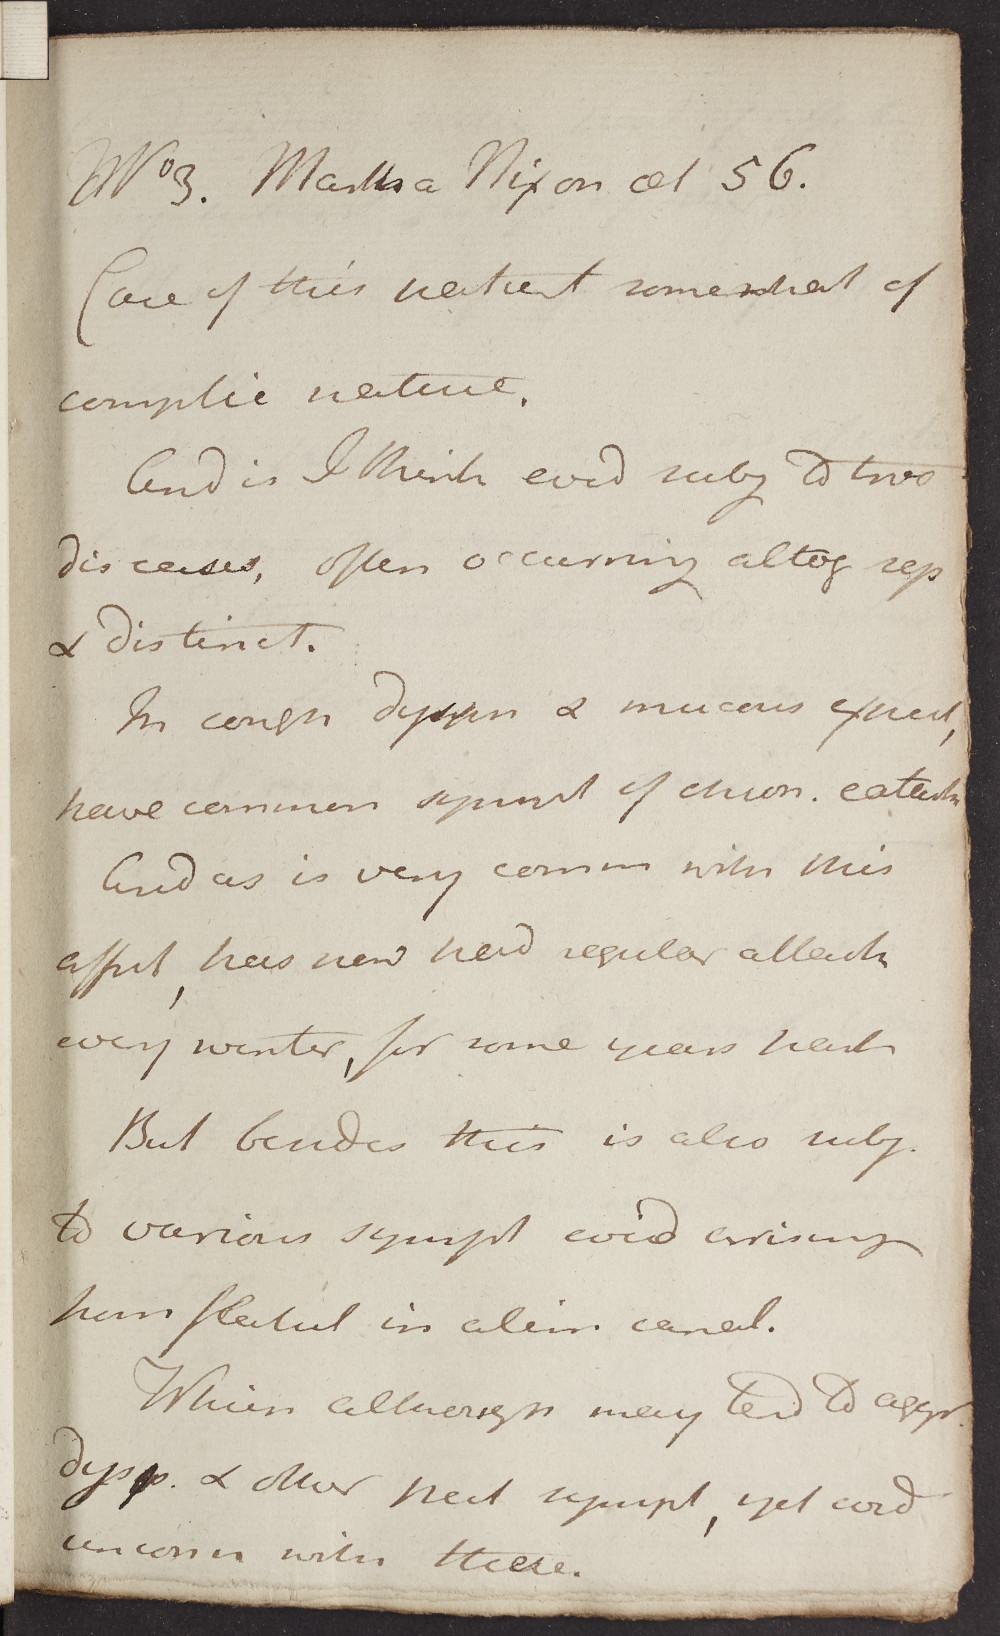 No 3. Martha Nixon æt 56.
Case of this patient somewhat of
complic nature.
And is I think evid subj to two
diseases, often occurring altog sep
& distinct.
In cough dyspn & mucous expect,
have common sympt of chron. catarh
And as is very comm with this
affect, has now had regular attack
every winter, for some years back
But besides this is also subj.
to various sympt evid arising
from flatul in alim canal.
Which although may tend to aggr.
dysp. & other pect sympt, yet evid
unconn with these.